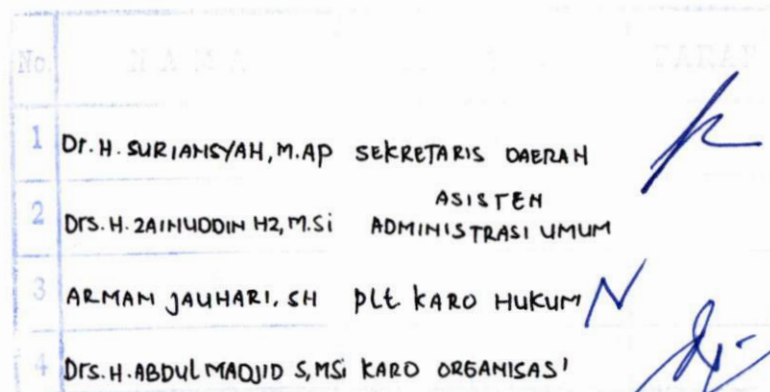 No. N A M A PARAF
1 Dr. H. SURIANSYAH, M.AP SEKRETARIS DAERAH
ASISTEN
2 Drs. H. ZAINUDDIN HZ, M.Si ADMINISTRASI UMUM
3 ARMAN JAUHARI, SH Plt KARO HUKUM
4 Drs. H. ABDUL MADJID S, MSi KARO ORGANISASI